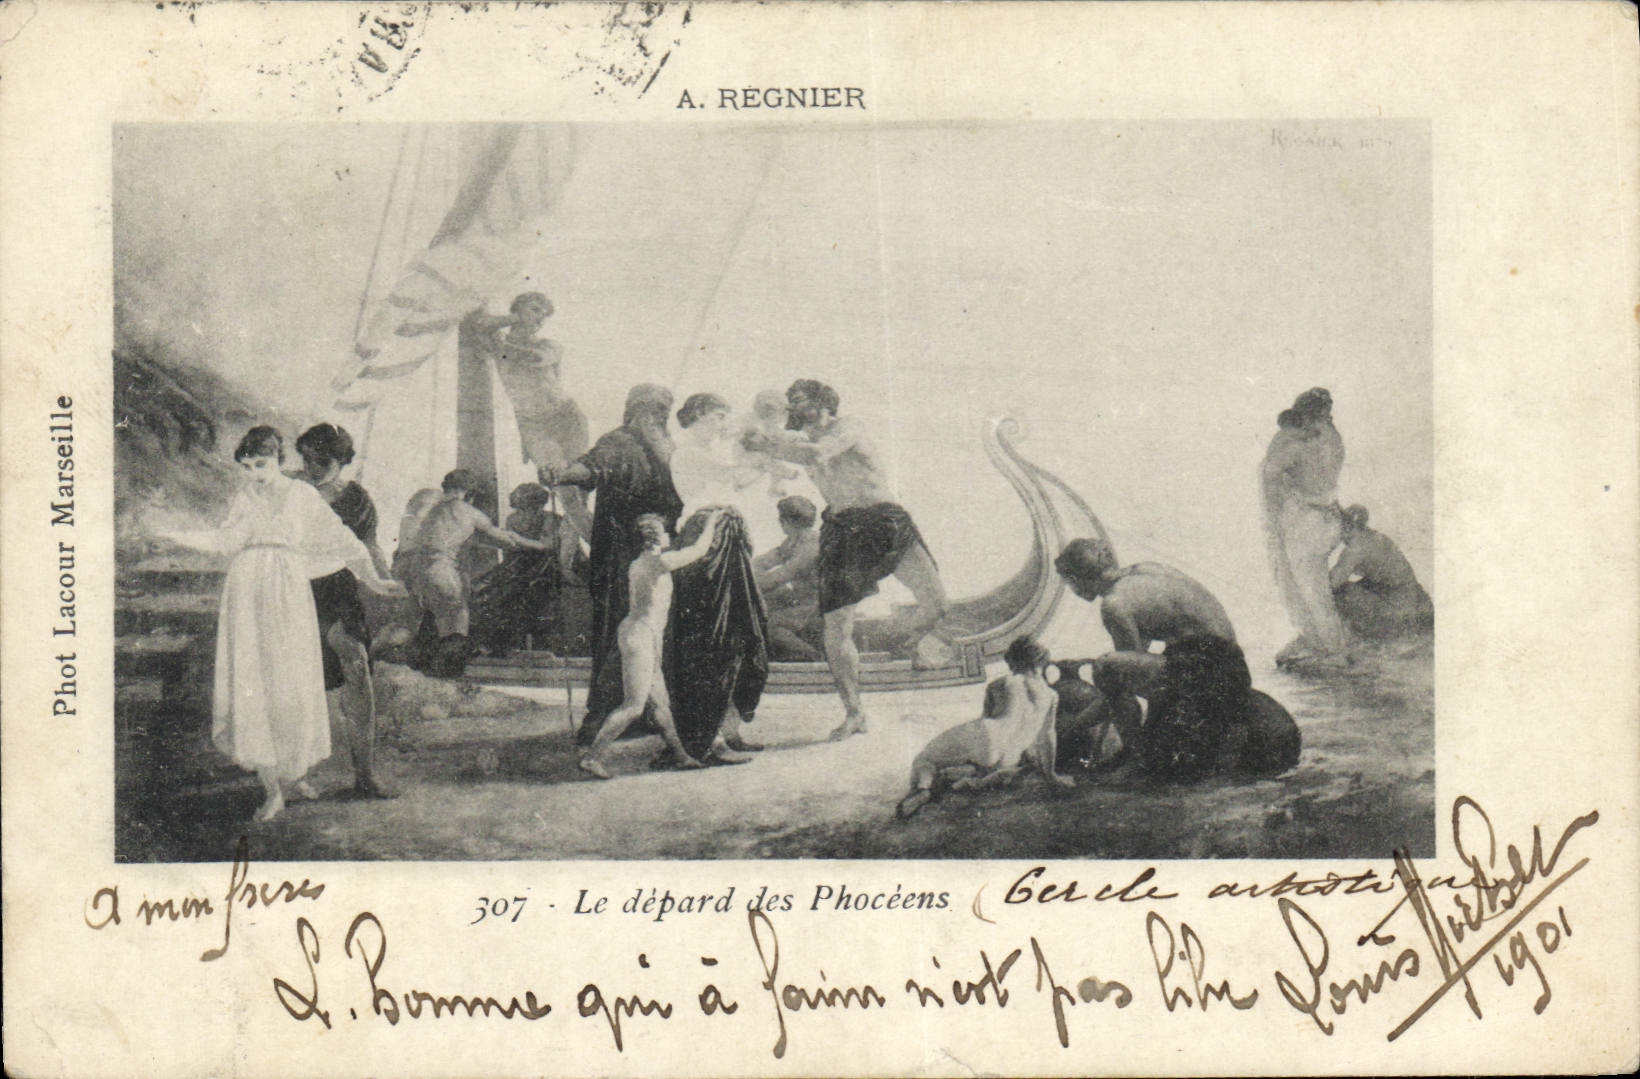 A. RÉGNIER
REGNIER
Phot Lacour Marseille
307 - Le dépard des Phocéens (Cercle artistique
A mon frere
L. homme qui à faim n'est pas libre Louis
1901